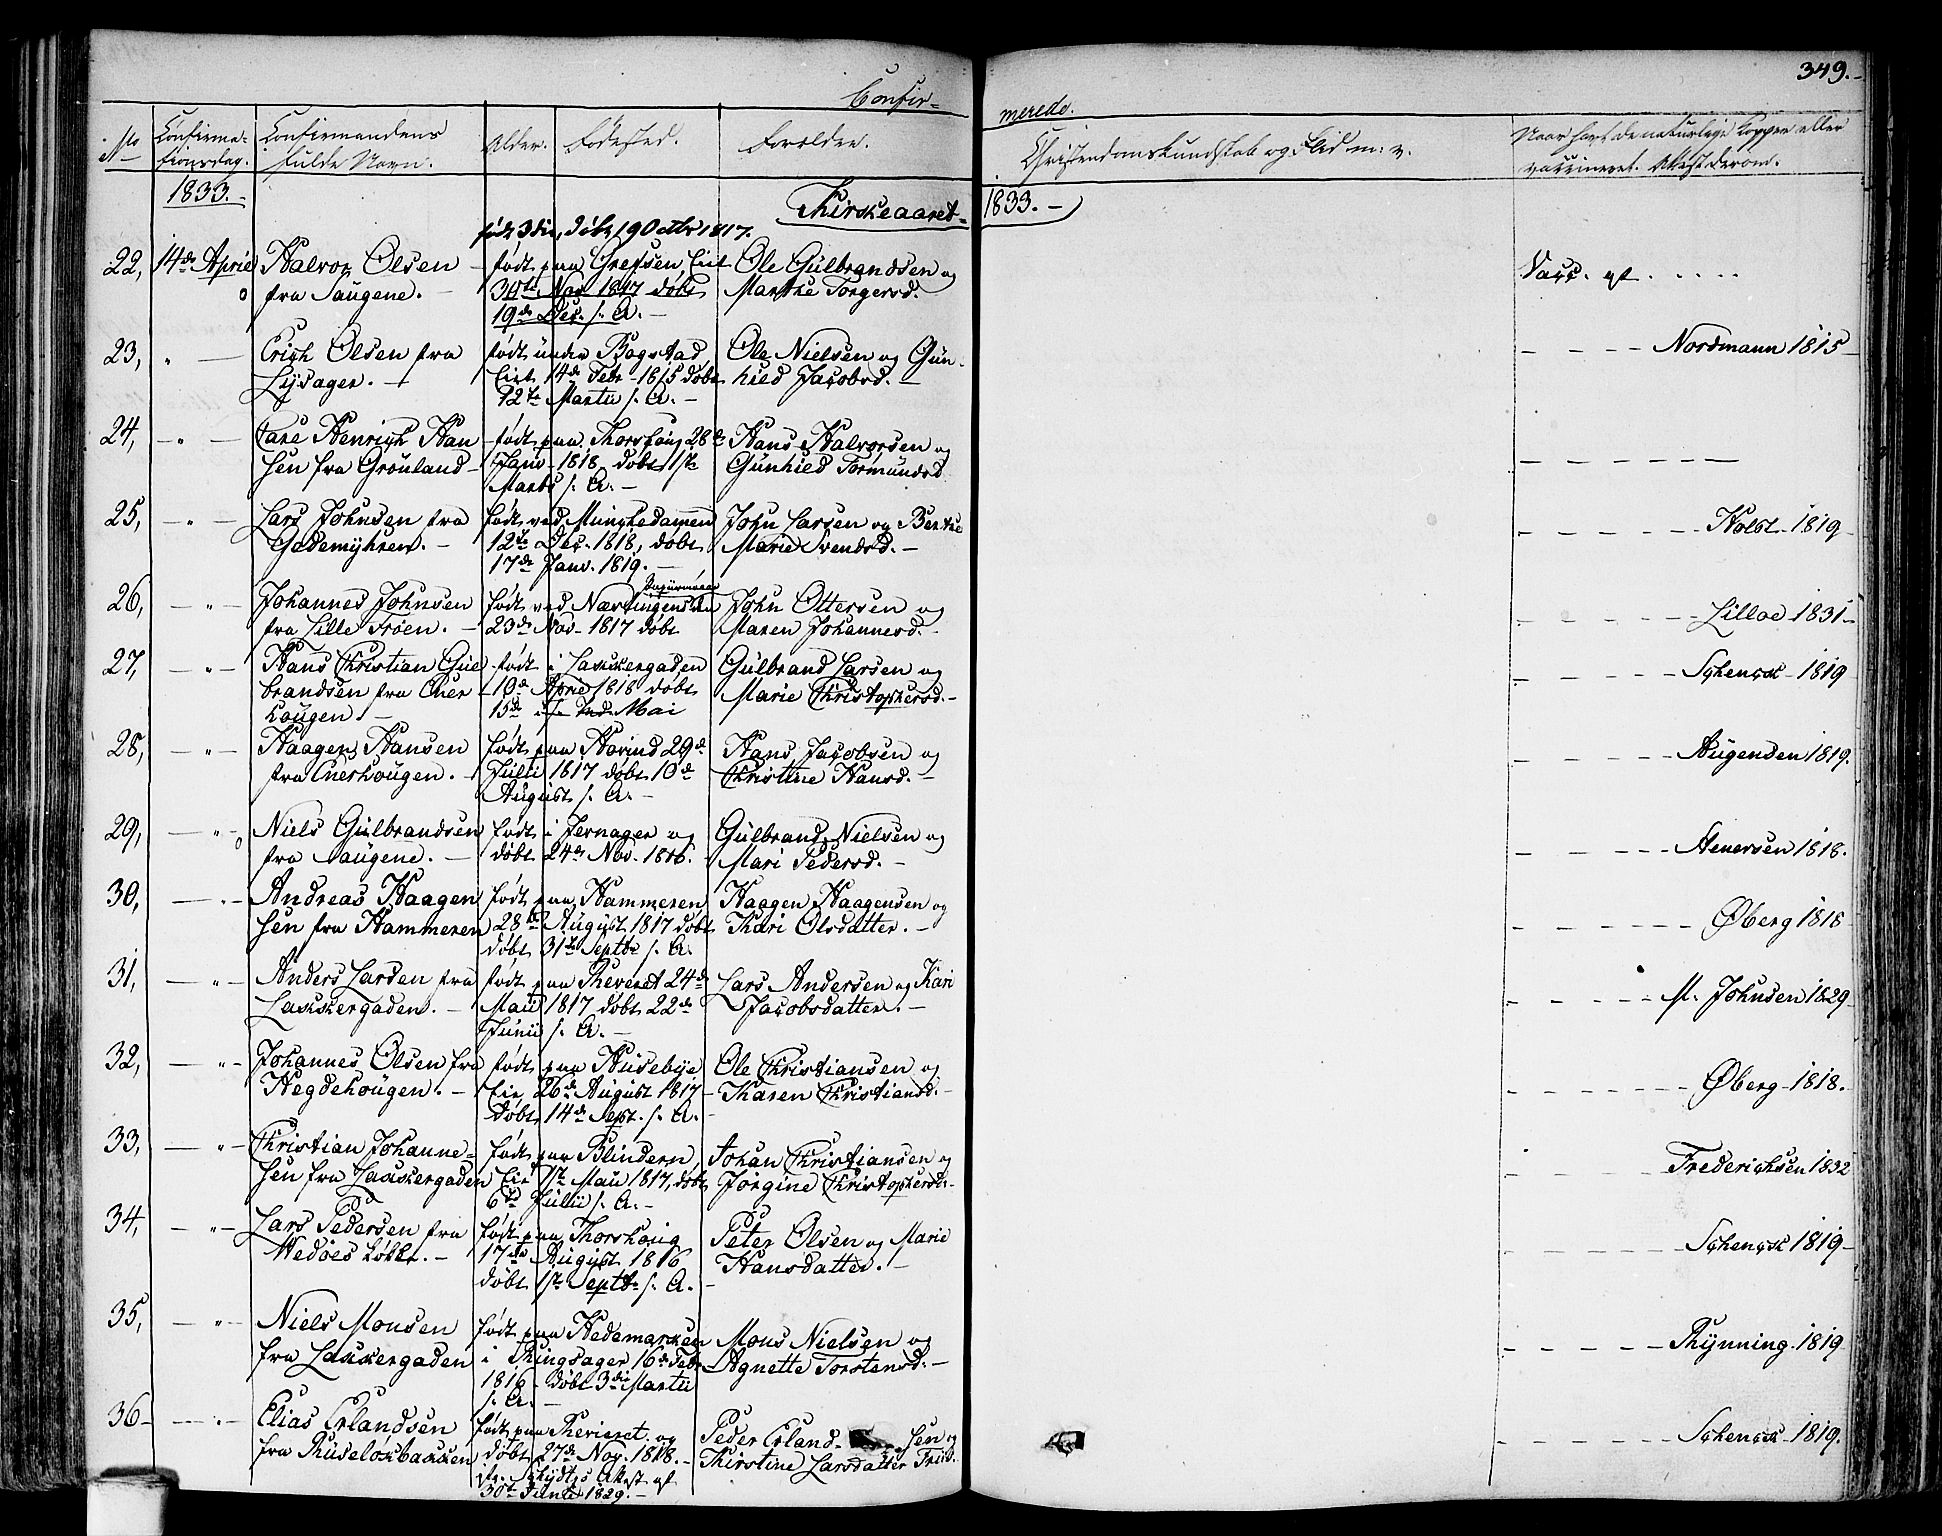 349.
Confir-
merede.
No
Confirma-
tionsdag.
Confirmandens
fulde Navn.
Alder.
Fødested.
Forældre.
Christendomskundskab og Flid m: v.
Naar havt de naturlige Kopper eller
vaccineret. Attest derom.
1833.
Kirkeaaret
1833. -
22, 14de April Halvor Olsen
fra Saugene. -
født 3die, døbt 19 Octbr 1817.
født paa Grefsen Eiet
30te Nov 1817 døbt
19de Dec. s. A. -
Ole Gulbrandsen og
Marthe Torgersd.
Vacc. af . . . . .
23, " Erich Olsen fra
Lysager. -
født under Bogstad
Eiet 14de Febr - 1815 døbt
12te Martii s. A. -
Ole Nielsen og Gun-
hild Jacobsd. -
Nordmann 1815
24, " Lare Henrich Han
sen fra Grønland -
født paa Thorshoug 28de
Janv - 1818 døbt 1ste
Marts s. A. -
Hans Halvorsen og
Gunhild Tormundsd
25, " Lars Johnsen fra
Gademyhren. -
født ved Munchedammen
12te Dec. 1818, døbt
17de Janv. 1819. -
John Larsen og Berthe
Marie Svendsd. -
Holst 1819
26, " Johannes Johnsen
fra Lille Frøen. -
født ved
Papirmølle
23de Nov - 1817 døbt
John Ottersen og
Maren Johannesd. -
Lilloe 1831
27, " Hans Christian Gul
brandsen fra Ener
hougen. -
født i Lakkergaden
10de April 1818 døbt
15de Mai
Gulbrand Larsen og
Marie Christophersd. -
Schenck 1819
28, " Haagen Hansen
fra Enerhougen. -
født paa Hovind 29de
Julii 1817 døbt 10de
August s. A. -
Hans Jacobsen og
Christine Hansd. -
Augensen 1819.
29, " Niels Gulbrandsen
fra Saugene. -
født i Jevnager og
døbt 24de Nov. 1816.
Gulbrand Nielsen og
Mari Pedersd. -
Stenersen 1818.
30, " Andreas Haagen
sen fra Hammeren
født paa Hammeren
28de August 1817 døbt
døbt 31te Septbr s. A.
Haagen Haagensen og
Kari Olsdatter. -
Øberg 1818
31, " Anders Larsen fra
Lakkergaden. -
født paa Theveret 24de
Maii 1817 døbt 22de
Junii s. A. -
Lars Andersen og Kari
Jacobsdatter. -
M. Johnsen 1829
32, " Johannes Olsen fra
Hegdehougen. -
født paa Husebye
Eie 26de August 1817
døbt 14de Sept. s. A. -
Ole Christiansen og
Karen Christiansd. -
Øberg 1818.
33, " Christian Johanne-
sen fra Lakkergaden
født paa Blindern
Eie 1ste Maii 1817, døbt
6te Julii s. A. -
Johan Christiansen og
Jørgine Christophersd. -
Frederichsen 1832
34, " Lars Pedersen fra
Wedøes Løkke. -
født paa Thorshoug
17de August 1816
døbt 1ste Septbr s. A. -
Peter Olsen og Marie
Hansdatter. -
Schenck 1819
35, " Niels Monsen
fra Lakkergaden
født paa Hedemarken
i Ringsager 16de Febr
1816 - døbt 3die Martii
s. A. -
Mons Nielsen og
Agnette Torstensd. -
Thynning 1819
36 - " Elias Erlandsen
fra Ruseløkbakken
født paa Theveret og
døbt 27de Nov. 1818. -
Attest af
30te Junii 1829. -
Peder Erland- sen og
Kirstine Larsdatter
Schenck 1819.